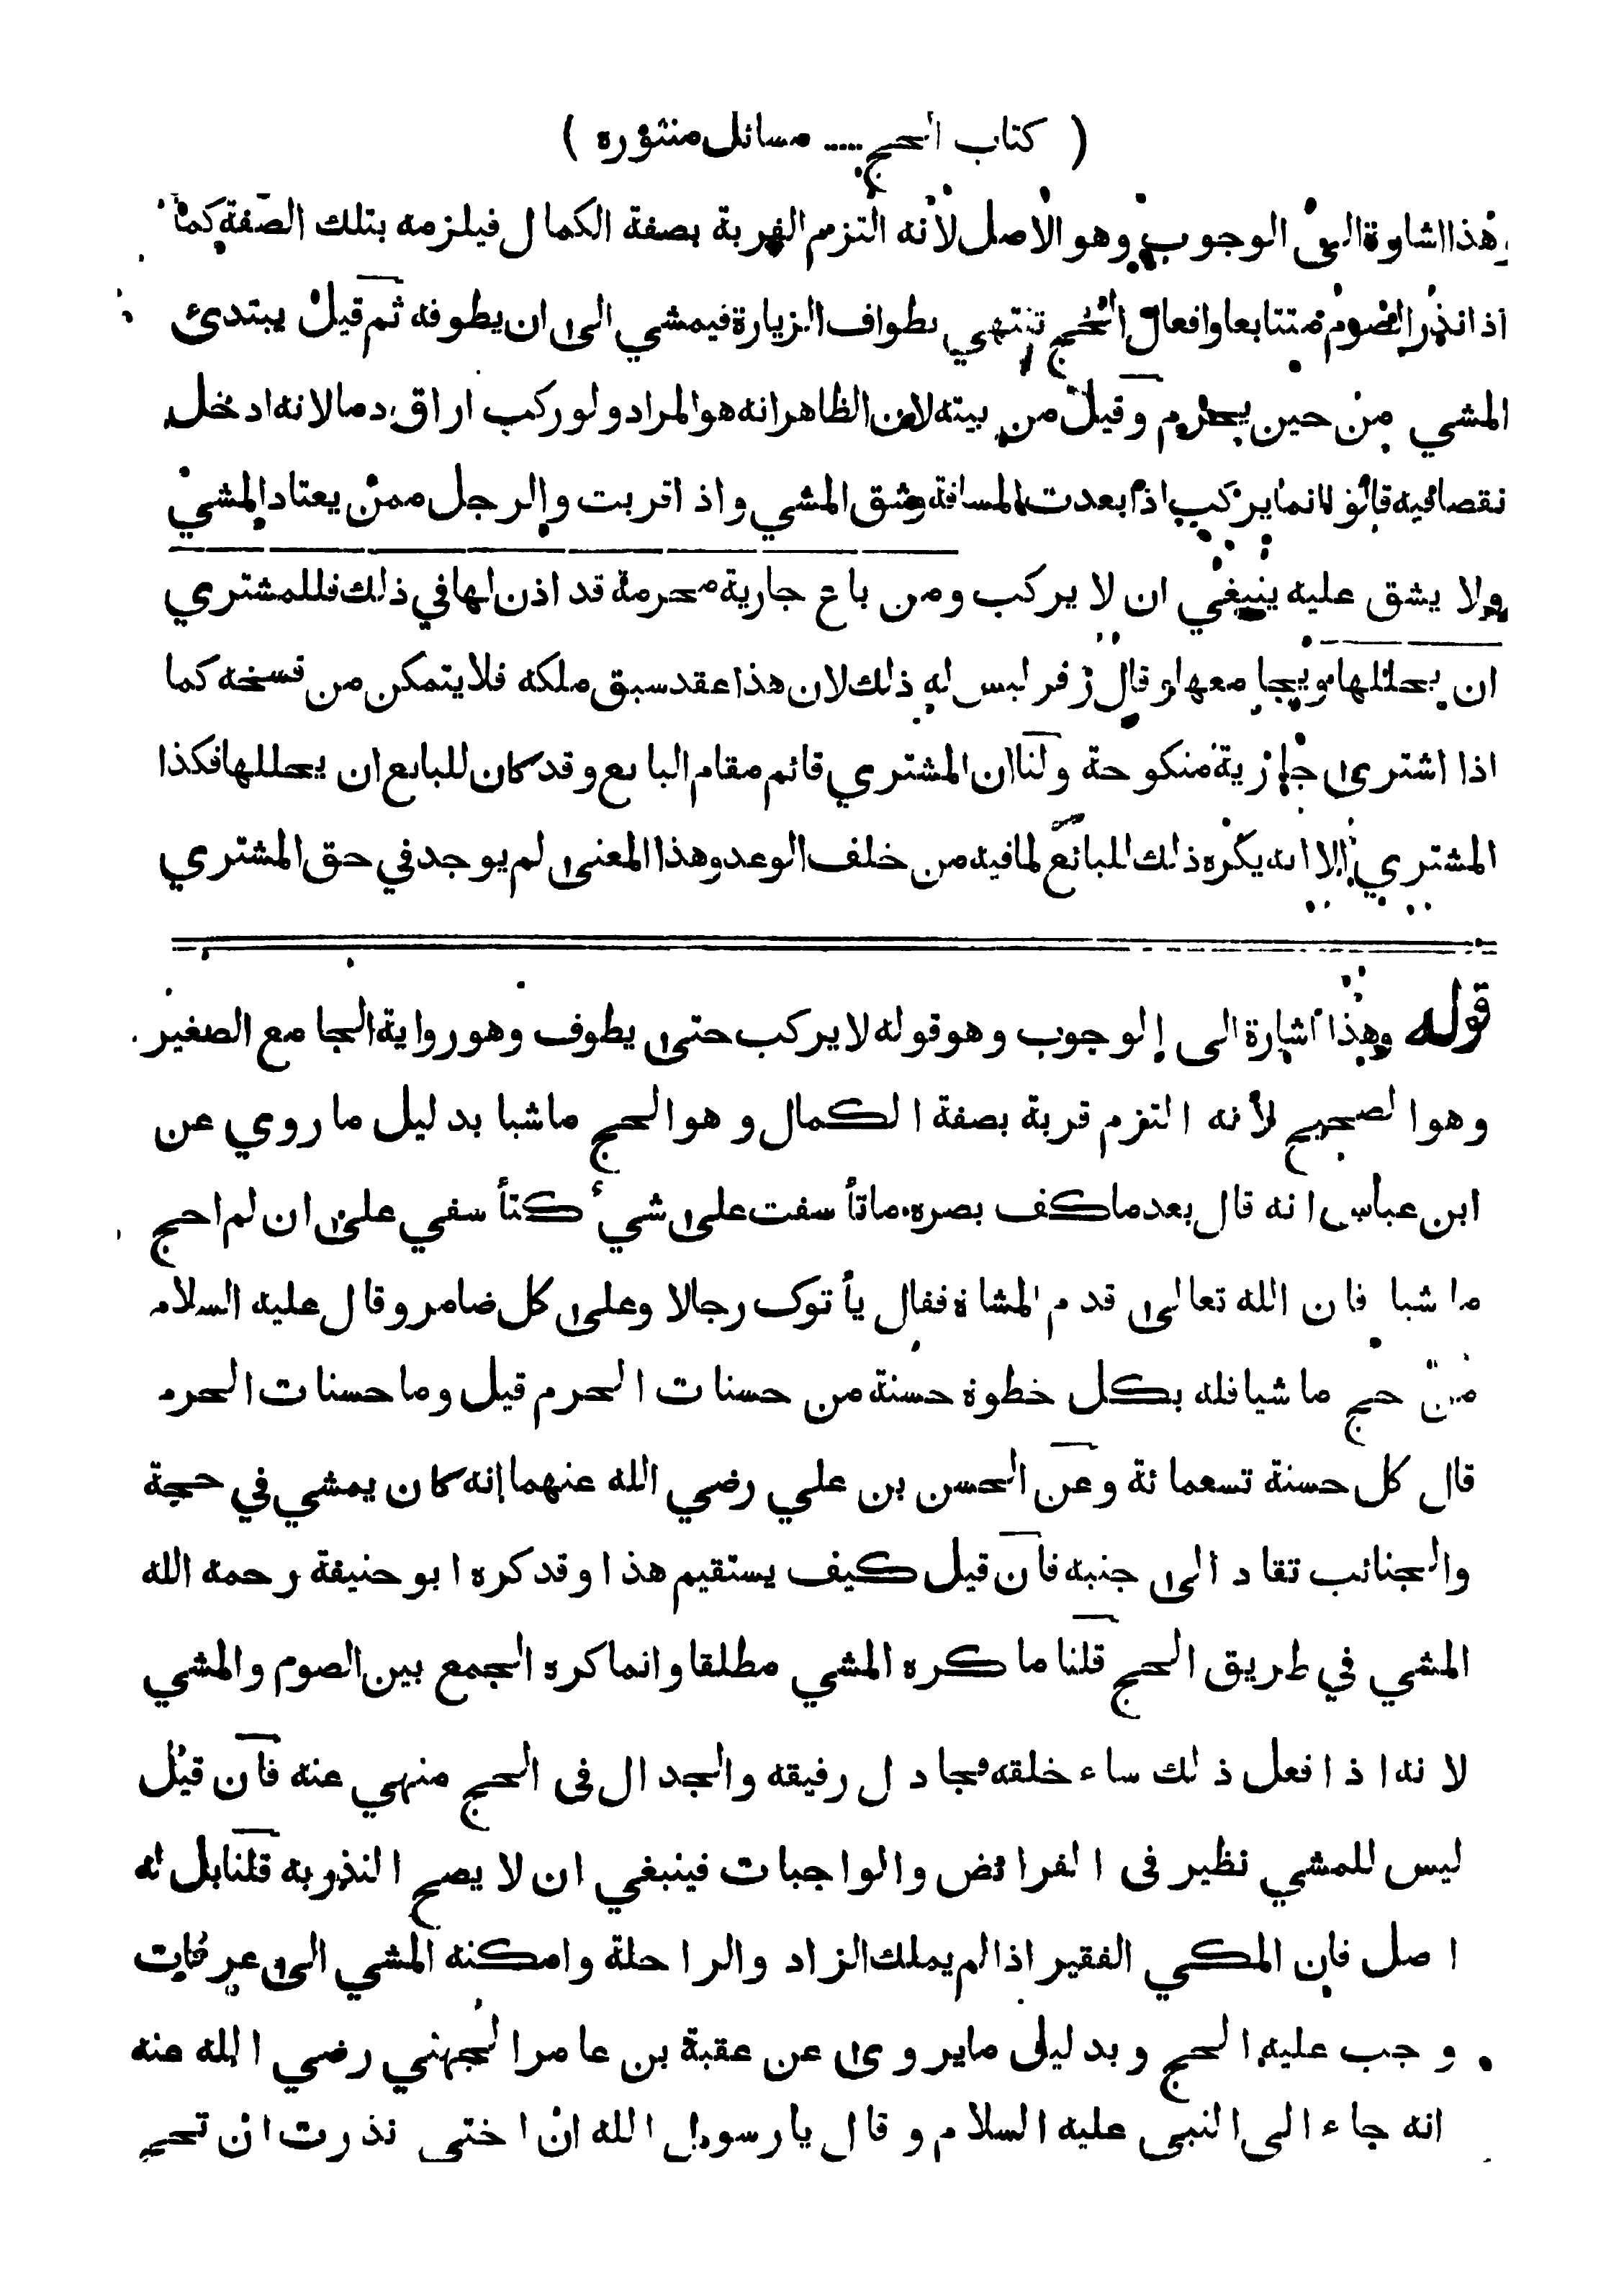 ( كتاب الحج ..... مسائل منثوره )
وهذا اشارة الى الوجوب وهو الاصل لأنه التزم القربة بصفة الكمال فيلزمه بتلك الصفة كما
اذا نذر الصوم متتابعا وافعال الحج تنتهي بطواف الزيارة فيمشي الى ان يطوفه ثم قيل يبتدئ
المشي من حين يحرم وقيل من بيته لان الظاهر انه هو المراد ولو ركب اراق دما لانه ادخل
نقصا فيه قالو لا نما يركب اذا بعدت المسافة وشق المشي واذا قربت والرجل ممن يعتاد المشي
ولا يشق عليه ينبغي ان لا يركب ومن باع جارية محرمة قد اذن لها في ذلك فللمشتري
ان يحللها ويجا معها وقال زفر ليس له ذلك لان هذا عقد سبق ملكه فلا يتمكن من فسخه كما
اذا اشترى جارية منكوحة ولنا ان المشتري قائم مقام البايع وقد كان للبايع ان يحللها فكذا
المشتري الا انه يكره ذلك للبائع لما فيه من خلف الوعد وهذا المعنى لم يوجد في حق المشتري
قوله وهذا اشارة الى الوجوب وهو قوله لا يركب حتى يطوف وهو رواية الجامع الصغير
وهو الصحيح لأنه التزم قربة بصفة الكمال وهو الحج ماشيا بدليل ما روي عن
ابن عباس انه قال بعد ما كف بصره ما تأسفت على شيء كتأسفي على ان لم احج
ما شيا فان الله تعالى قدم المشاة فقال يأتوك رجالا وعلى كل ضامر وقال عليه السلام
من حج ما شيا فله بكل خطوة حسنة من حسنات الحرم قيل وما حسنات الحرم
قال كل حسنة تسعمائة وعن الحسن بن علي رضي الله عنهما إنه كان يمشي في حجة
والجنائب تقاد الى جنبه فان قيل كيف يستقيم هذا وقد كره ابو حنيفة رحمه الله
المشي في طريق الحج قلنا ما كره المشي مطلقا وانما كره الجمع بين الصوم والمشي
لانه اذا فعل ذلك ساء خلقه فجادل رفيقه والجدال فى الحج منهي عنه فان قيل
ليس للمشي نظير فى الفرائض والواجبات فينبغي ان لا يصح النذر به قلنا بل له
اصل فان المكي الفقير اذا لم يملك الزاد والراحلة وامكنه المشي الى عرفات
وجب عليه الحج وبدليل ما يروى عن عقبة بن عامر الجهني رضي الله عنه
انه جاء الى النبي عليه السلام وقال يا رسول الله ان اختى نذرت ان تحج